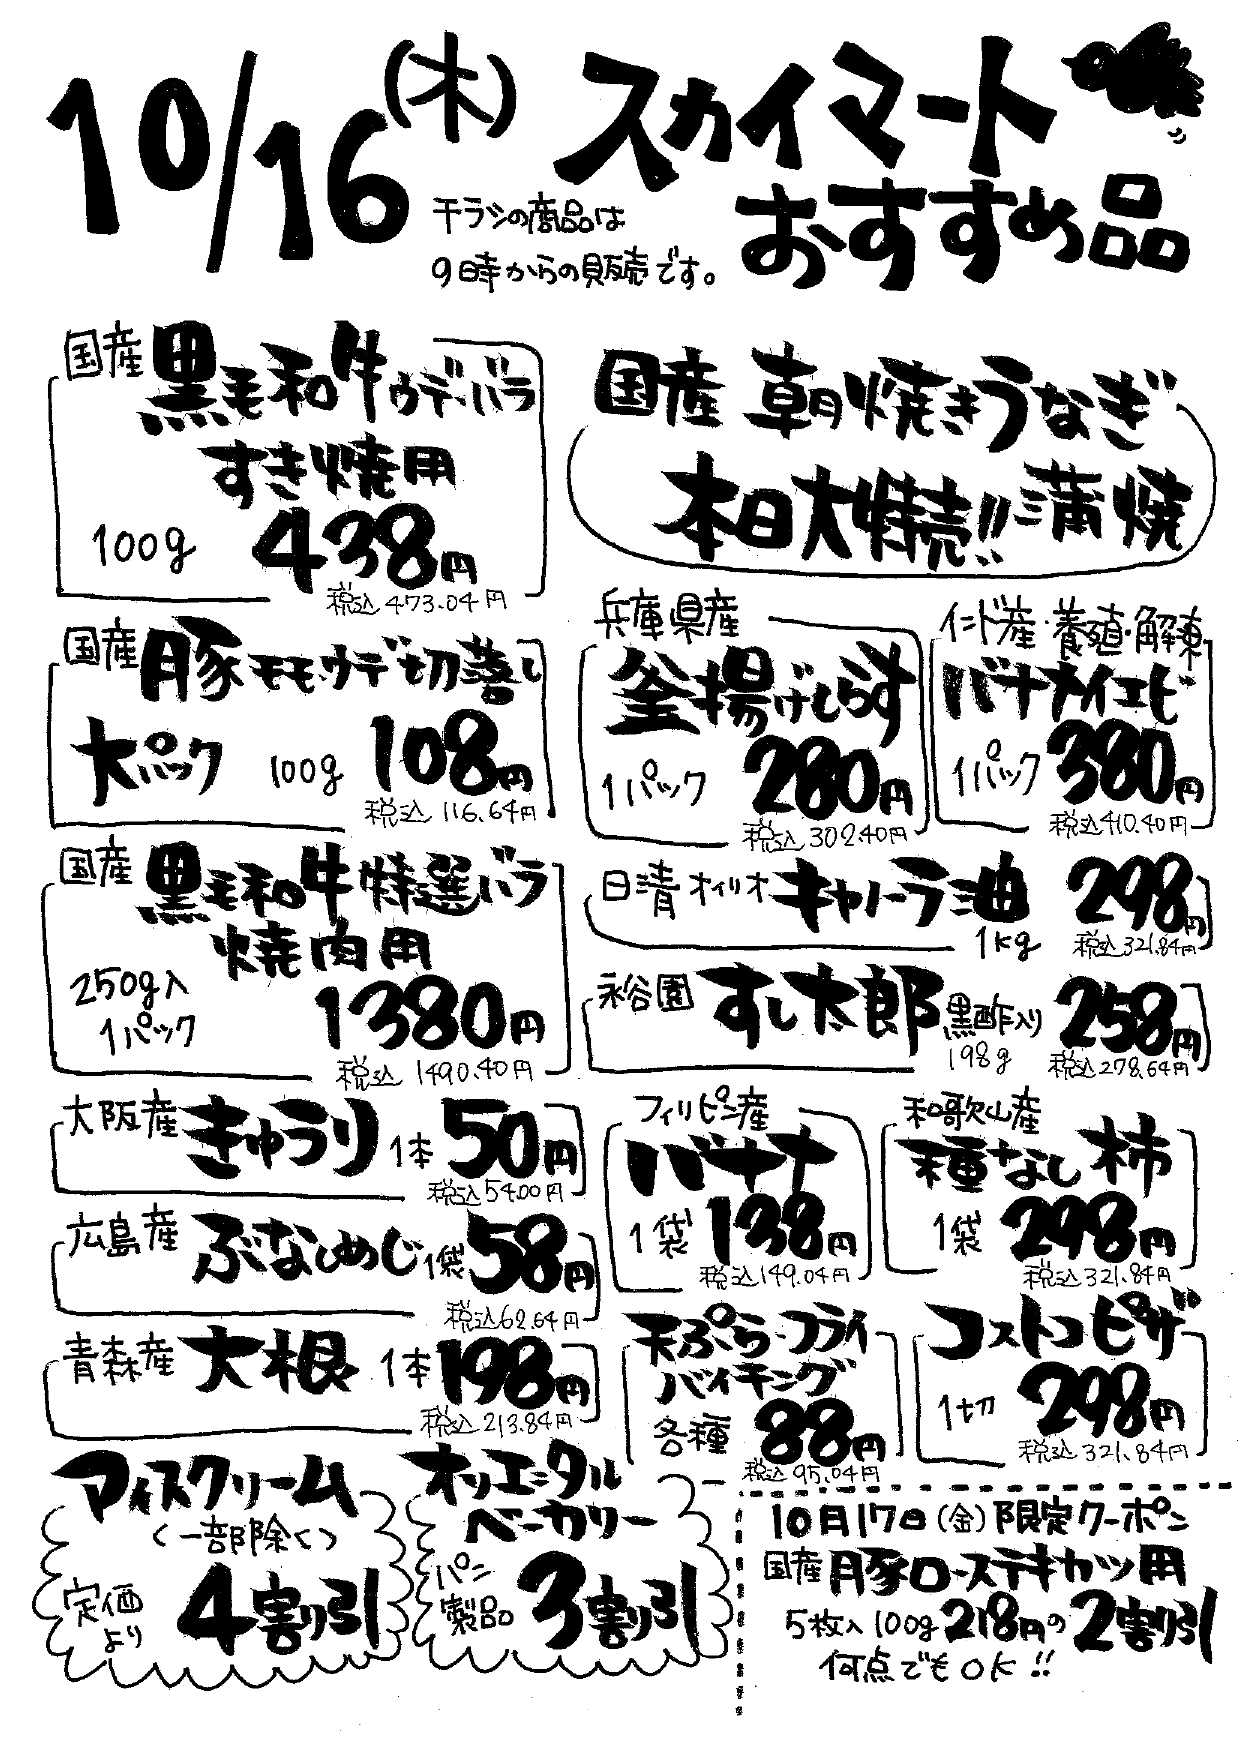 10/16(木) スカイマート
おすすめ品
チラシの商品は
9時からの販売です。
国産 黒毛和牛ウデ・バラ
すき焼用
100g 438円
税込473.04円
国産 朝焼きうなぎ
本日大特売!! 蒲焼
国産 豚モモ・ウデ切落し
大パック 100g 108円
税込116.64円
兵庫県産
釜揚げしらす
1パック 280円
税込302.40円
インド産・養殖・解凍
バナナメイエビ
1パック 380円
税込410.40円
国産 黒毛和牛特選バラ
焼肉用
250g入
1パック 1380円
税込1490.40円
日清オイリオ キャノーラ油 298円
1kg 税込321.84円
永谷園 すし太郎 黒酢入り 258円
198g 税込278.64円
大阪産 きゅうり 1本 50円
税込54.00円
広島産 ぶなしめじ 1袋 58円
税込62.64円
青森産 大根 1本 198円
税込213.84円
フィリピン産
バナナ
1袋 138円
税込149.04円
和歌山産
種なし柿
1袋 298円
税込321.84円
天ぷら・フライ
バイキング
各種 88円
税込95.04円
コストコピザ
1切 298円
税込321.84円
アイスクリーム
〈一部除く〉
定価より 4割引
オリエンタル
ベーカリー
パン製品 3割引
10月17日(金)限定クーポン
国産 豚ロースステキカツ用
5枚入100g 218円の2割引
何点でもOK!!